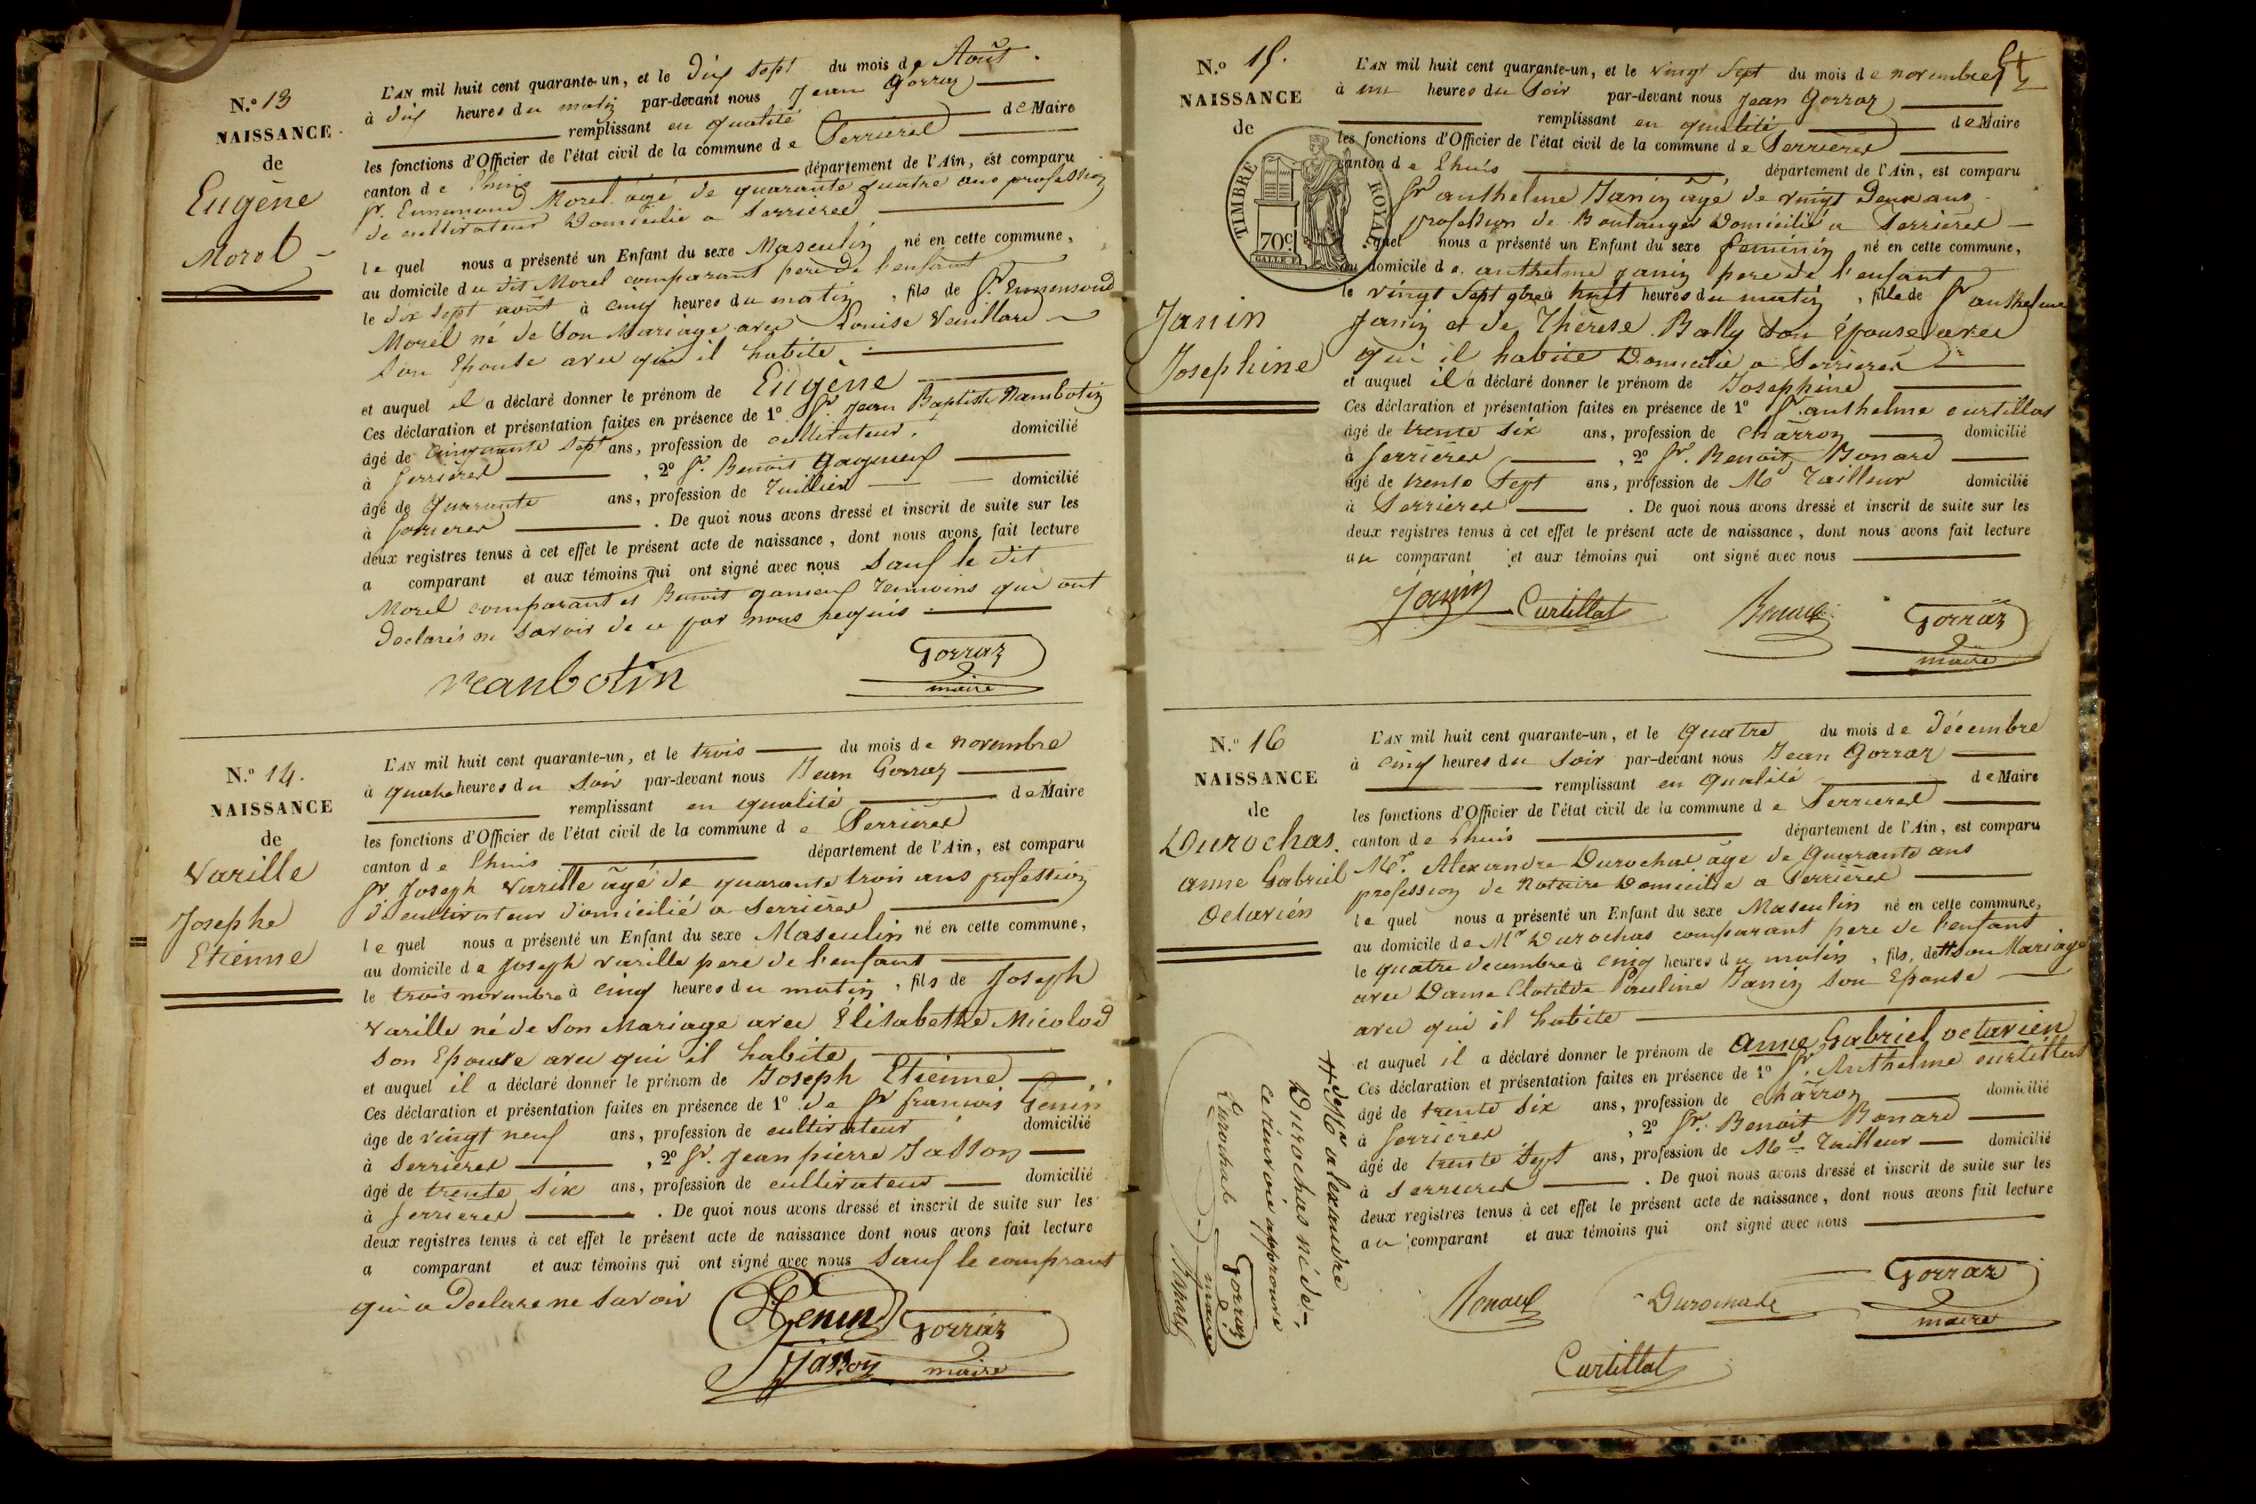 N.º 13
NAISSANCE
de
Eugène
Morel
L'AN mil huit cent quarante-un, et le dix sept du mois de Août.
à dix heures du matin par-devant nous Jean Gorraz
remplissant en qualité de Maire
les fonctions d'Officier de l'état civil de la commune de Serrières
canton de Lhuis département de l'Ain, est comparu
Sr. Morel agé de quarante quatre ans profession
de cultivateur Domicilié a Serrières
le quel nous a présenté un Enfant du sexe Masculin né en cette commune,
au domicile du dit Morel comparant pere de l'enfant
le dix sept août à cinq heures du matin, fils de Sr.
Morel né de son Mariage avec Louise Veuillard
son Epouse avec qui il habite.
et auquel il a déclaré donner le prénom de Eugène
Ces déclaration et présentation faites en présence de 1º Sr. Jean Baptiste Nambotin
âgé de cinquante sept ans, profession de cultivateur. domicilié
à Serrières, 2º Sr. Benoit
âgé de quarante ans, profession de Tuillier domicilié
à Serrieres. De quoi nous avons dressé et inscrit de suite sur les
deux registres tenus à cet effet le présent acte de naissance, dont nous avons fait lecture
a comparant et aux témoins qui ont signé avec nous sauf le dit
Morel comparant et Benoit temoins qui ont
declarés ne savoir de ce par nous requis.
nanbotin
Gorraz
maire
N.º 14.
NAISSANCE
de
Varille
Josephe
Etienne
L'AN mil huit cent quarante-un, et le trois du mois de novembre
à quatre heures du soir par-devant nous Jean Gorraz
remplissant en qualité de Maire
les fonctions d'Officier de l'état civil de la commune de Serrières
canton de Lhuis département de l'Ain, est comparu
Sr Joseph Varille âgé de quarante trois ans profession
de cultivateur domicilié a Serrières
le quel nous a présenté un Enfant du sexe Masculin né en cette commune,
au domicile de Joseph varille pere de l'enfant
le trois novembre à cinq heures du matin, fils de Joseph
varille né de son Mariage avec Élisabethe Micolod
son Epouse avec qui il habite
et auquel il a déclaré donner le prénom de Joseph Etienne
Ces déclaration et présentation faites en présence de 1º de Sr francois Genin
âgé de vingt neuf ans, profession de cultivateur domicilié
à Serrières, 2º Sr. Jean pierre Jasson
âgé de trente six ans, profession de cultivateur domicilié
à Serrieres. De quoi nous avons dressé et inscrit de suite sur les
deux registres tenus à cet effet le présent acte de naissance dont nous avons fait lecture
a comparant et aux témoins qui ont signé avec nous sauf le comprant
qui a declare ne savoir
Genin
Gorraz
Jasson
maire
N.º 15.
NAISSANCE
de
TIMBRE ROYAL
70c
Janin
Josephine
L'AN mil huit cent quarante-un, et le vingt sept du mois de novembre
à un heures du soir par-devant nous Jean Gorraz
remplissant en qualité de Maire
les fonctions d'Officier de l'état civil de la commune de Serrières
canton de Lhuis département de l'Ain, est comparu
Sr anthelme Janin agé de vingt Deux ans
profession de Boulanger Domicilié a Serrières
quel nous a présenté un Enfant du sexe feminin né en cette commune,
au domicile de anthelme janin pere de l'enfant
le vingt sept 9bre à huit heures du matin, fille de Sr anthelme
Janin et de Thérèse Bally son Épouse avec
qui il habite Domicilié a Serrieres
et auquel il a déclaré donner le prénom de Josephine
Ces déclaration et présentation faites en présence de 1º Sr. anthelme curtillat
âgé de trente six ans, profession de charron domicilié
à Serrieres, 2º Sr. Benoit Bonard
âgé de trente sept ans, profession de Md Tailleur domicilié
à Serrieres. De quoi nous avons dressé et inscrit de suite sur les
deux registres tenus à cet effet le présent acte de naissance, dont nous avons fait lecture
au comparant et aux témoins qui ont signé avec nous
Janin
Curtillat
Bonard
Gorraz
maire
N.º 16
NAISSANCE
de
Durochas.
anne Gabriel
Octavién
L'AN mil huit cent quarante-un, et le quatre du mois de décembre
à cinq heures du soir par-devant nous Jean Gorraz
remplissant en qualité de Maire
les fonctions d'Officier de l'état civil de la commune de Serrieres
canton de Lhuis département de l'Ain, est comparu
Mr. Alexandre Durochas âgé de quarante ans
profession de Notaire Domicilié a Serrières
le quel nous a présenté un Enfant du sexe Masculin né en cette commune,
au domicile de Mr Durochas comparant pere de l'enfant
le quatre decembre à cinq heures du matin, fils, de # son Mariage
avec Dame Clotilde Pauline Janin son Epouse
avec qui il habite
et auquel il a déclaré donner le prénom de Anne Gabriel octavien
Ces déclaration et présentation faites en présence de 1º Sr. Anthelme curtillat
âgé de trente six ans, profession de charron domicilié
à Serrieres, 2º Sr. Benoit Bonard
âgé de trente sept ans, profession de Md Tailleur domicilié
à Serrieres. De quoi nous avons dressé et inscrit de suite sur les
deux registres tenus à cet effet le présent acte de naissance, dont nous avons fait lecture
au comparant et aux témoins qui ont signé avec nous
# de Mr alexandre
Durochas né de
ce renvoi approuvé
Durochas
Gorraz
maire
Bonard
Bonard
Durochas
Gorraz
maire
Curtillat